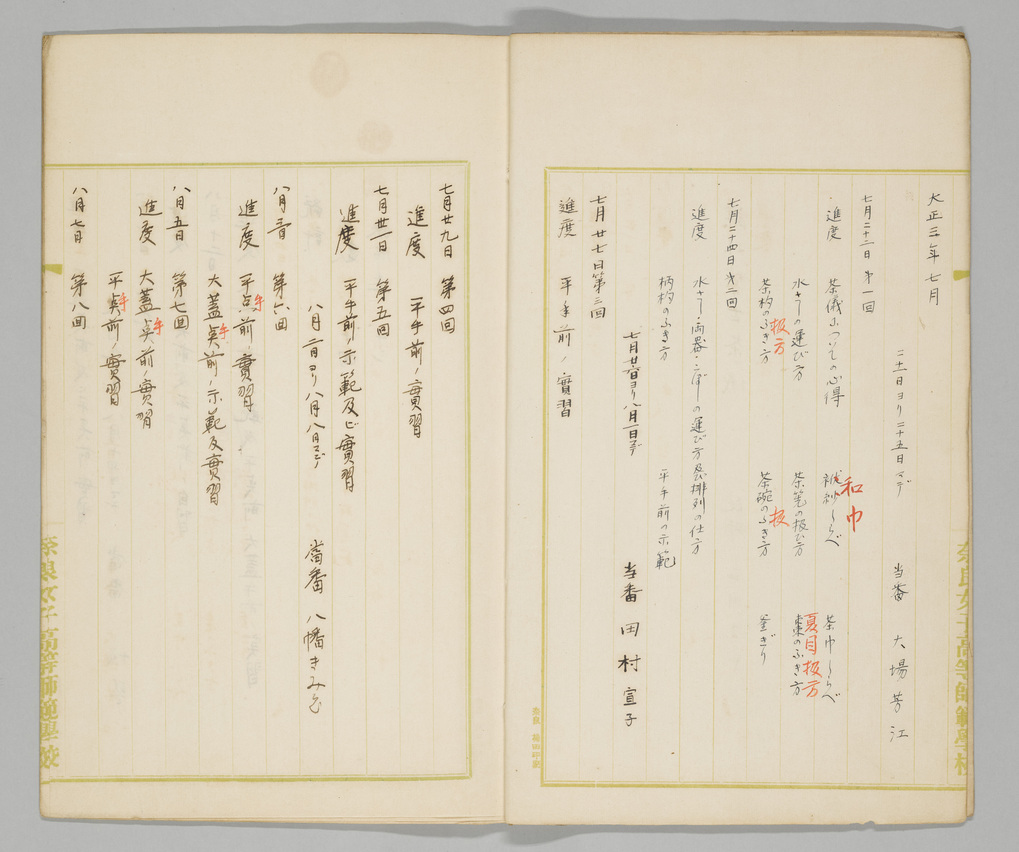 大正三年七月
二十一日ヨリ二十五日マデ 当番 大場芳江
七月二十二日 第一回
進度 茶儀についての心得 袱紗しらべ 茶巾しらべ
和巾
水サシの運び方 茶筅の扱ひ方 棗のふき方
夏目扱方
茶杓のふき方 茶碗のふき方 釜ぎり
扱方 扱
七月二十四日 第二回
進度 水サシ両器・こぼしの運び方及び排列の仕方
柄杓のふき方 平手前の示範
七月廿六日ヨリ八月一日マデ 当番 田村宣子
七月廿七日第三回
進度 平手前ノ實習
七月廿九日 第四回
進度 平手前ノ實習
七月廿一日 第五回
進度 平手前ノ示範及ビ實習
八月二日ヨリ八月八日マデノ 當番 八幡きみと
八月三日 第六回
進度 平点前ノ實習
手
大蓋点前ノ示範及實習
手
八月五日 第七回
進度 大蓋点前ノ實習
手
平点前ノ實習
手
八月七日 第八回
奈良女子高等師範學校
奈良女子高等師範學校